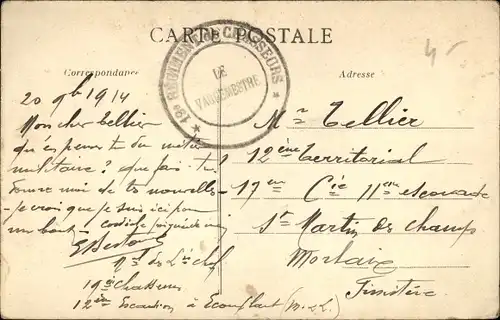 CARTE POSTALE
Correspondance
Adresse
19e RÉGIMENT DE CHASSEURS
DE
VAGUEMESTRE
20 9bre 1914
Mon cher Tellier
que penses tu du métier
militaire? que fais tu
donne moi de tes nouvelles
je crois que je suis ici pour
un bout cordiale poignée de main
Mal des Lis chef
19e Chasseurs
12ème Escadron à Ecouflant (M.&L.)
Mr Tellier
12ème territorial
17em Cie 11em escouade
St Martin des champs
Morlaix
Finistère